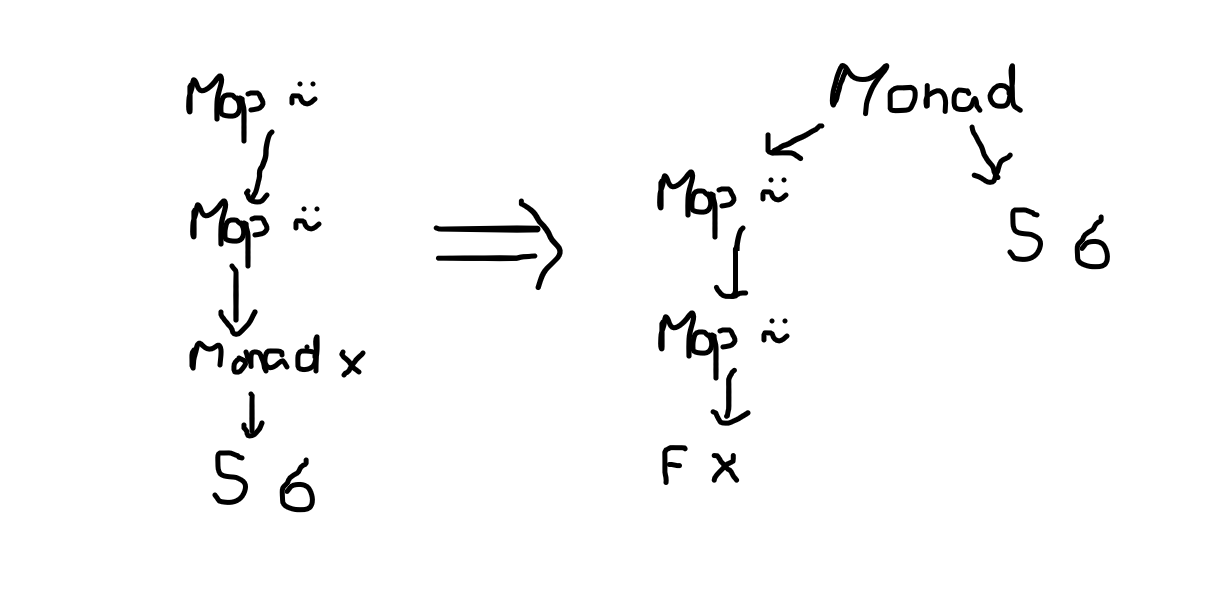 Map ~̈
Map ~̈
Monad x
5 6
Monad
Map ~̈
5 6
Map ~̈
F x